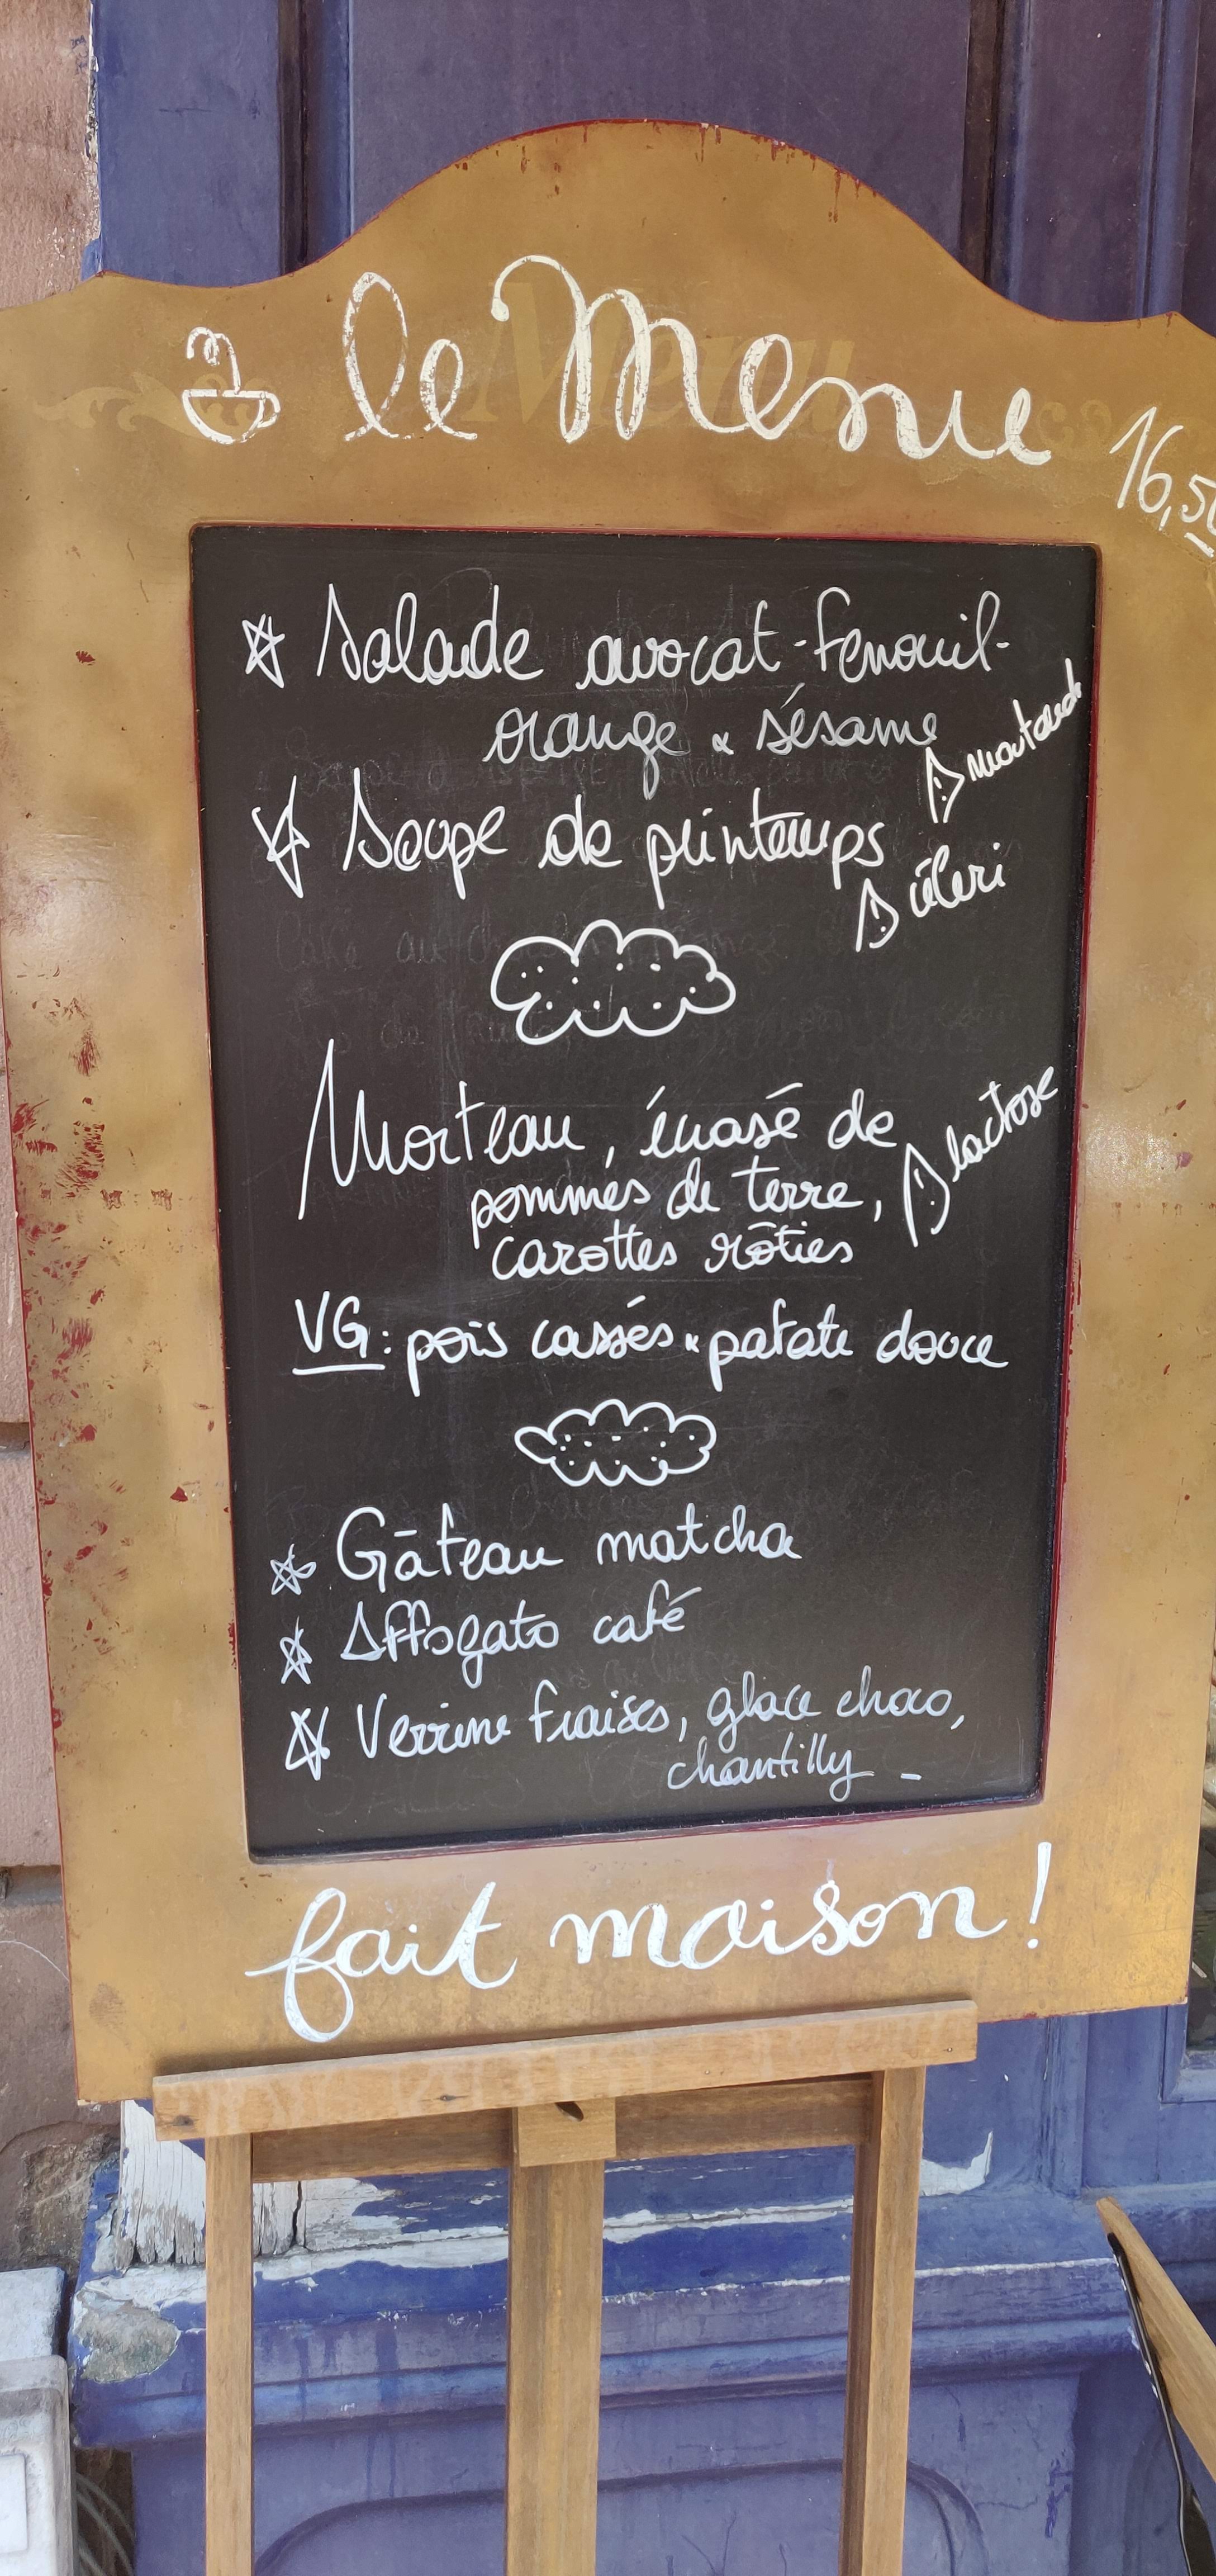 le Menu
16,50
Salade avocat-fenouil-
orange & sésame
⚠ moutarde
Soupe de printemps
⚠ céleri
Morteau, écrasé de
pommes de terre,
⚠ lactose
carottes rôties
VG: pois cassés & patate douce
Gâteau matcha
Affogato café
Verrine fraises, glace choco,
chantilly -
fait maison!